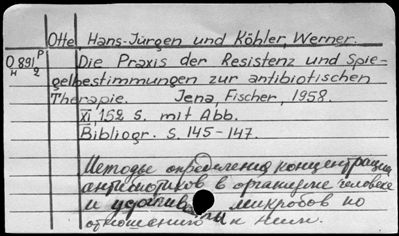 Otte, Hans-Jürgen und Köhler, Werner.
O 891 P Die Praxis der Resistenz und Spie-
H 2 gelbestimmungen zur antibiotischen
Therapie. Jena, Fischer, 1958.
XI, 152 S. mit Abb.
Bibliogr. S. 145-147.
Методы определения концентрации
антибиотиков в организме человека
и микробов по
отношению к ним.